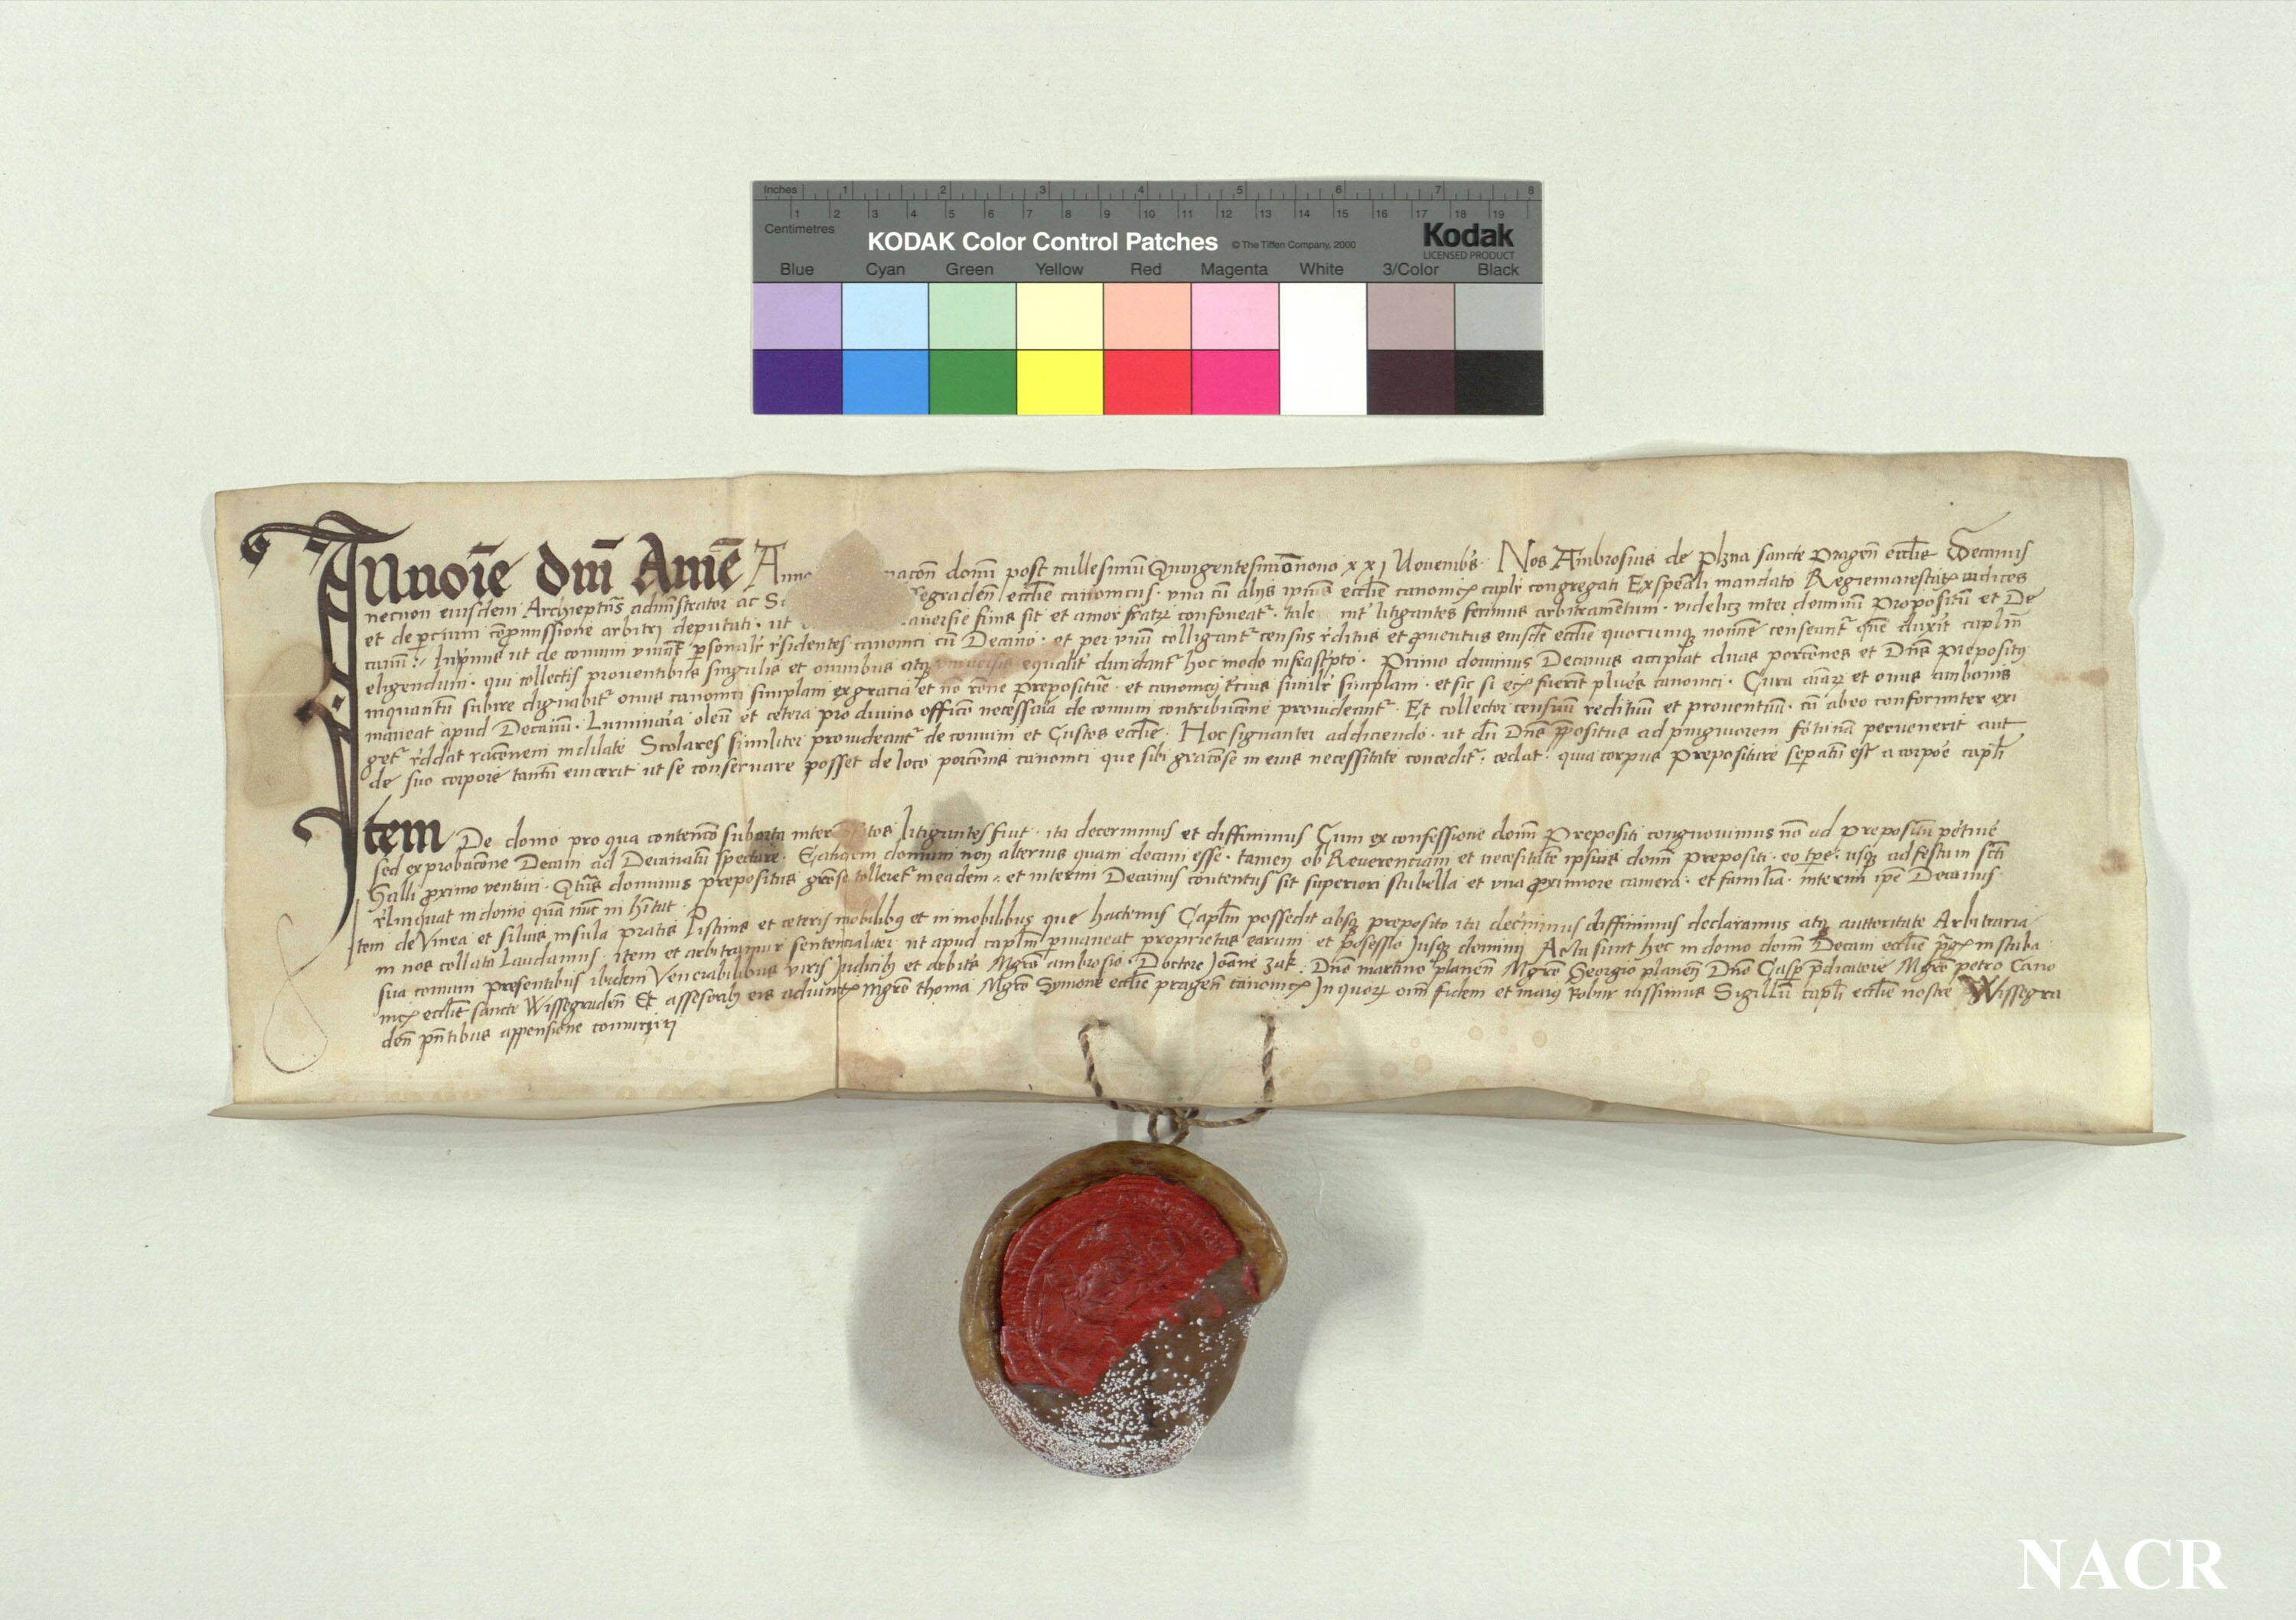 Inches 1 2 3 4 5 6 7 8
1 2 3 4 5 6 7 8 9 10 11 12 13 14 15 16 17 18 19
Centimetres
KODAK Color Control Patches © The Tiffen Company, 2000 Kodak
LICENSED PRODUCT
Blue Cyan Green Yellow Red Magenta White 3/Color Black
In noīe dn̄i Amē Anno nacōn domī post millesimū Quingentesimōnono xxj Novembrẜ. Nos Ambrosius de plzna sancte pragen̄ eccl̄ie Decanus
necnon eiusdem Archiep̄tus admīstrator ac segraden̄ eccl̄ie canonicus. una cū alijs ipsius eccl̄ie canonicꝭ capl̄r congregati Ex sp̄eali mandato Regiemaiestatꝭ iudices
et de parcium cōpromissione arbitri deputati. ut aversie finis sit et amor fratrꝝ confoveatᷣ. tale int̾ litigantes fecimus arbitramentum. videlicꝫ inter dominū propositū et De
canū: Inprimis ut de comuni vivāt p̱sonalr̄ rẜidentes canonici cū Decano. et per unū colligantᷣ census r̾ditus et ꝓventus eiusdē eccl̄ie quocumqꝫ nomīne censeantᷣ quē duxit capl̄m
eligendum. qui collectis proventibus singulis et omnibus atqꝫ equalit̾ dividantᷣ hoc modo infrasc̾pto. Primo dominus Decanus accipiat duas porcōnes et Dn̄s prepositꝰ
inquantū subire dignabitᷣ onus canonici simplam ex gracia et nō rōne prepositurē. et canonicꝰ t̾cius similr̄ simplam. et sic si eciā fuerīt plures canonici. Cura aīarꝝ et onus ambonis
maneat apud Decanū. Luminaria oleū et cetera pro divino officio necessaria de comuni contribucōne provideantᷣ. Et collector censuū redituū et proventuū. cū abeo conformiter exi
getᷣ r̾ddat racōnem indilate Scolares similiter provideantᷣ de comuni et Custos eccl̄ie. Hoc signanter addiciendo. ut dū Dn̄s p̄positus ad pinguiorem fortunā pervenerit aut
de suo corpore tantū evicerit ut se conservare posset de loco porcōnis canonici que sibi graciōse in eius necessitate conceditᷣ. cedat. quia corpus prepositure sep̱atū est a corpoē capl̄i
Item De domo pro qua contencō suborta inter litigantes fiut. ita decernimus et diffinimus Cum ex confessione domī prepositi cognovimus nō ad prepositū p̱tinē
sed ex probacōne Decani ad Decanatū spectare. domum non alterius quam decani esse. tamen ob Reverenciam et necesitatē ipsius domī prepositi. eo tp̄e. usqꝫ ad festum scti
Galli proximo venturi. Qt̄us dominus prepositus grōse tolleretᷣ in eadem. et interim Decanus contentus sit superiori stubella et una ꝓximiore camera. et familia. interim ip̄e Decanus
relinquat in domo quā nūc in hītat.
Item de Vinea et silvis insula pratis Piscinis et ceteris mobilibꝫ et in mobilibus que hactenus Capl̄m possedit absqꝫ preposito ita dec̾nimus diffinimus declaramus atqꝫ auttoritate Arbitraria
in nos collata Laudamus. item et arbitramur sentencialiter ut apud capl̄m p̱maneat proprietas earum et possessio Jusqꝫ dominij Acta sunt hec in domo domī Decani eccl̄ie p̄gꝫ in stuba
sua comuni presentibus ibidem Venerabilibus viris Judicibꝫ et arbit̾s Mgrō ambrosio Doctore Joāne zak. Dnō martino planen̄ Mgrō Georgio planen̄ Dnō Casp̱ p̄dicatore Mgrō petro Cano
nicꝭ eccl̄ie sancte Wissegraden̄ Et assesoribꝫ eis adiunctꝭ Mgrō thoma Mgrō Symone eccl̄ie pragen̄ canonicꝭ In quorꝝ om̄ fidem et maiꝰ robur iussimus Sigillū capl̄i eccl̄ie nostre Wissegra
den̄ pn̄tibus appensione comuniri
NACR